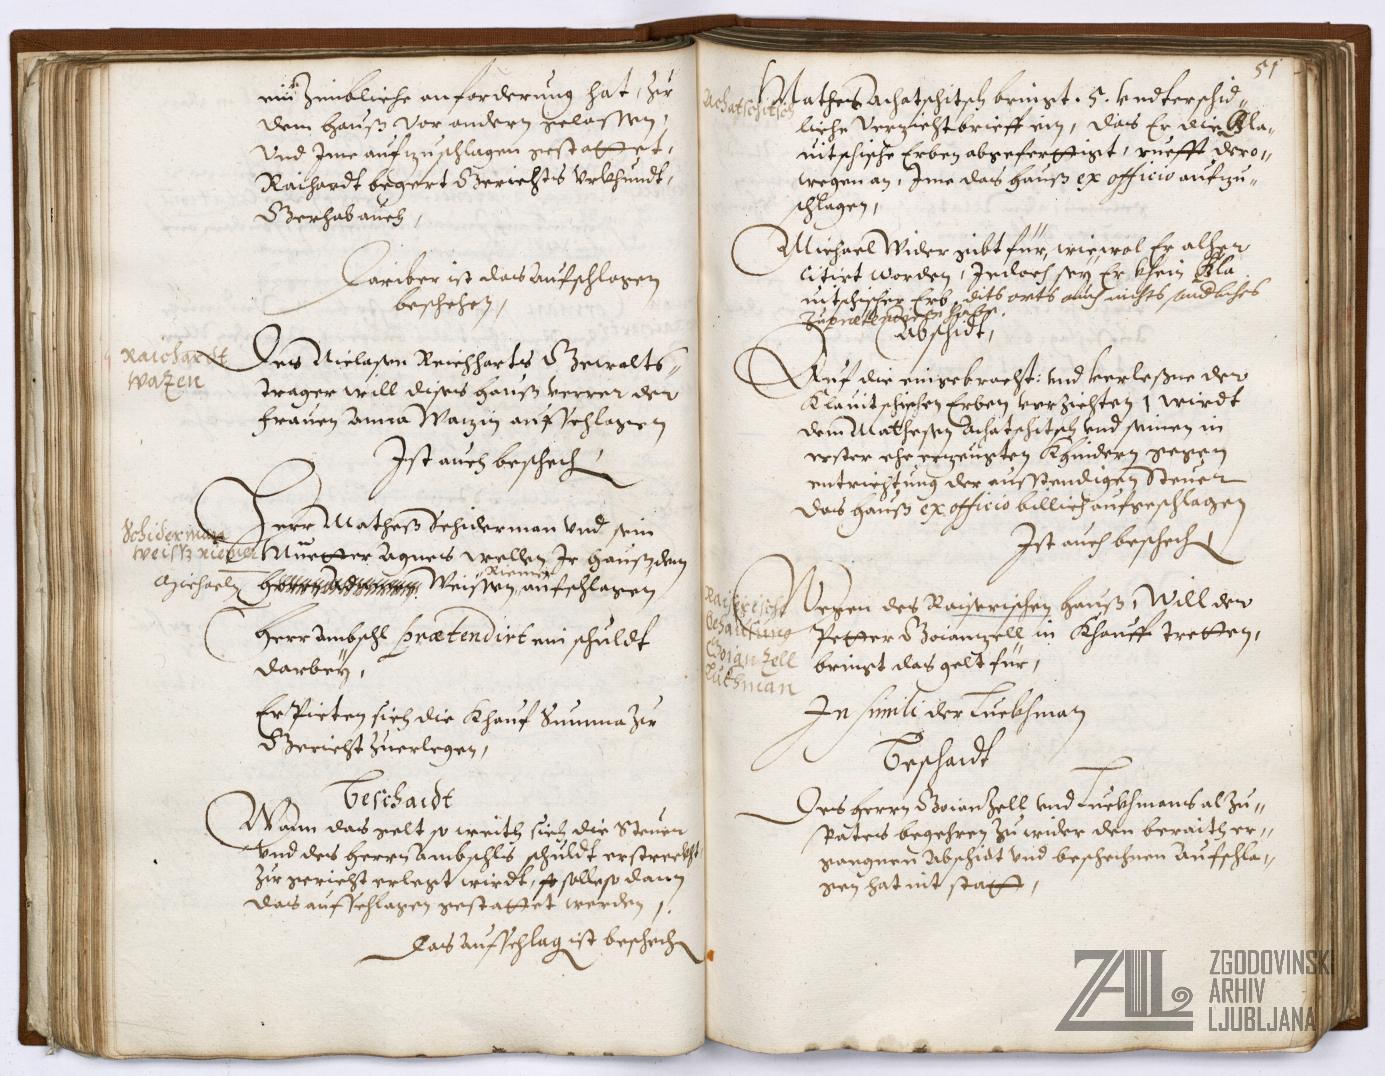 ein Zimbliche anforderung hat, Zu
dem Hauß vor andern gelassen,
Und Ime aufzuschlagen gestattet,
Raichardt begert Gerichts Urkhundt,
Gerhab auch,
Dariber ist das Aufschlagen
beschehen,
Raichardt
Wazen
Des Niclasen Reichharts Gewalts-
trager will dises Hauß verrer der
Frauen Anna Wazin aufschlagen
Ist auch beschech
Schiderman
Weiss riemer
Herr Matheß Schiderman und sein
Muetter Agnes wellen Ir Hauß dem
Michaeln Weissen Riemer aufschlagen
Herr Ambschl praetendirt ein schuldt
darbey,
Er Pieten sich die Khauf Summa Zu
Gericht Zuerlegen,
Beschaidt
Wann das gelt so weith sich die Steuer
und des Herrn Ambschls schuldt erstreckht,
Zu gericht erlegt wirdt, so solle so dann
das aufschlagen gestattet werden,
Das Aufschlag ist beschech
51
Achatschitsch
Mathes Achatschitsch bringt 5. underschid-
liche Verzicht brieff ein, das Er die Kla-
uitschische Erben abgeferttigt, ruefft dero-
wegen an, Ime das Hauß ex officio aufzu-
schlagen,
Michael Wider gibt für, wiewol Er alher
citirt worden, Jedoch sey Er khein Kla
uitschischer Erb, dits orts auch nichts
Zu praetendiern habe.
Abschidt,
Auf die eingebracht: und verleßne der
Klauitschischen Erben verzichten, wirdt
dem Mathesen Achatschitsch und seinen in
erster ehe erzeugten Khindern gegen
entrichtung der ausstendigen Steuer
das Hauß ex officio billich aufgeschlagen
Ist auch beschech
Behausung
Goianzell
Lukhman
Wegen des Raiserischen Hauß, Will der
Petter Goianzell in Khauff tretten,
bringt das gelt für,
In simili der Luekhman
Beschaidt
Des Herrn Goianzell und Luekhmans al Zu-
spates begehren Zu wider den beraith er-
gangnen Abschidt und beschechnen Aufschla-
gen hat nit statt,
ZAL
ZGODOVINSKI
ARHIV
LJUBLJANA